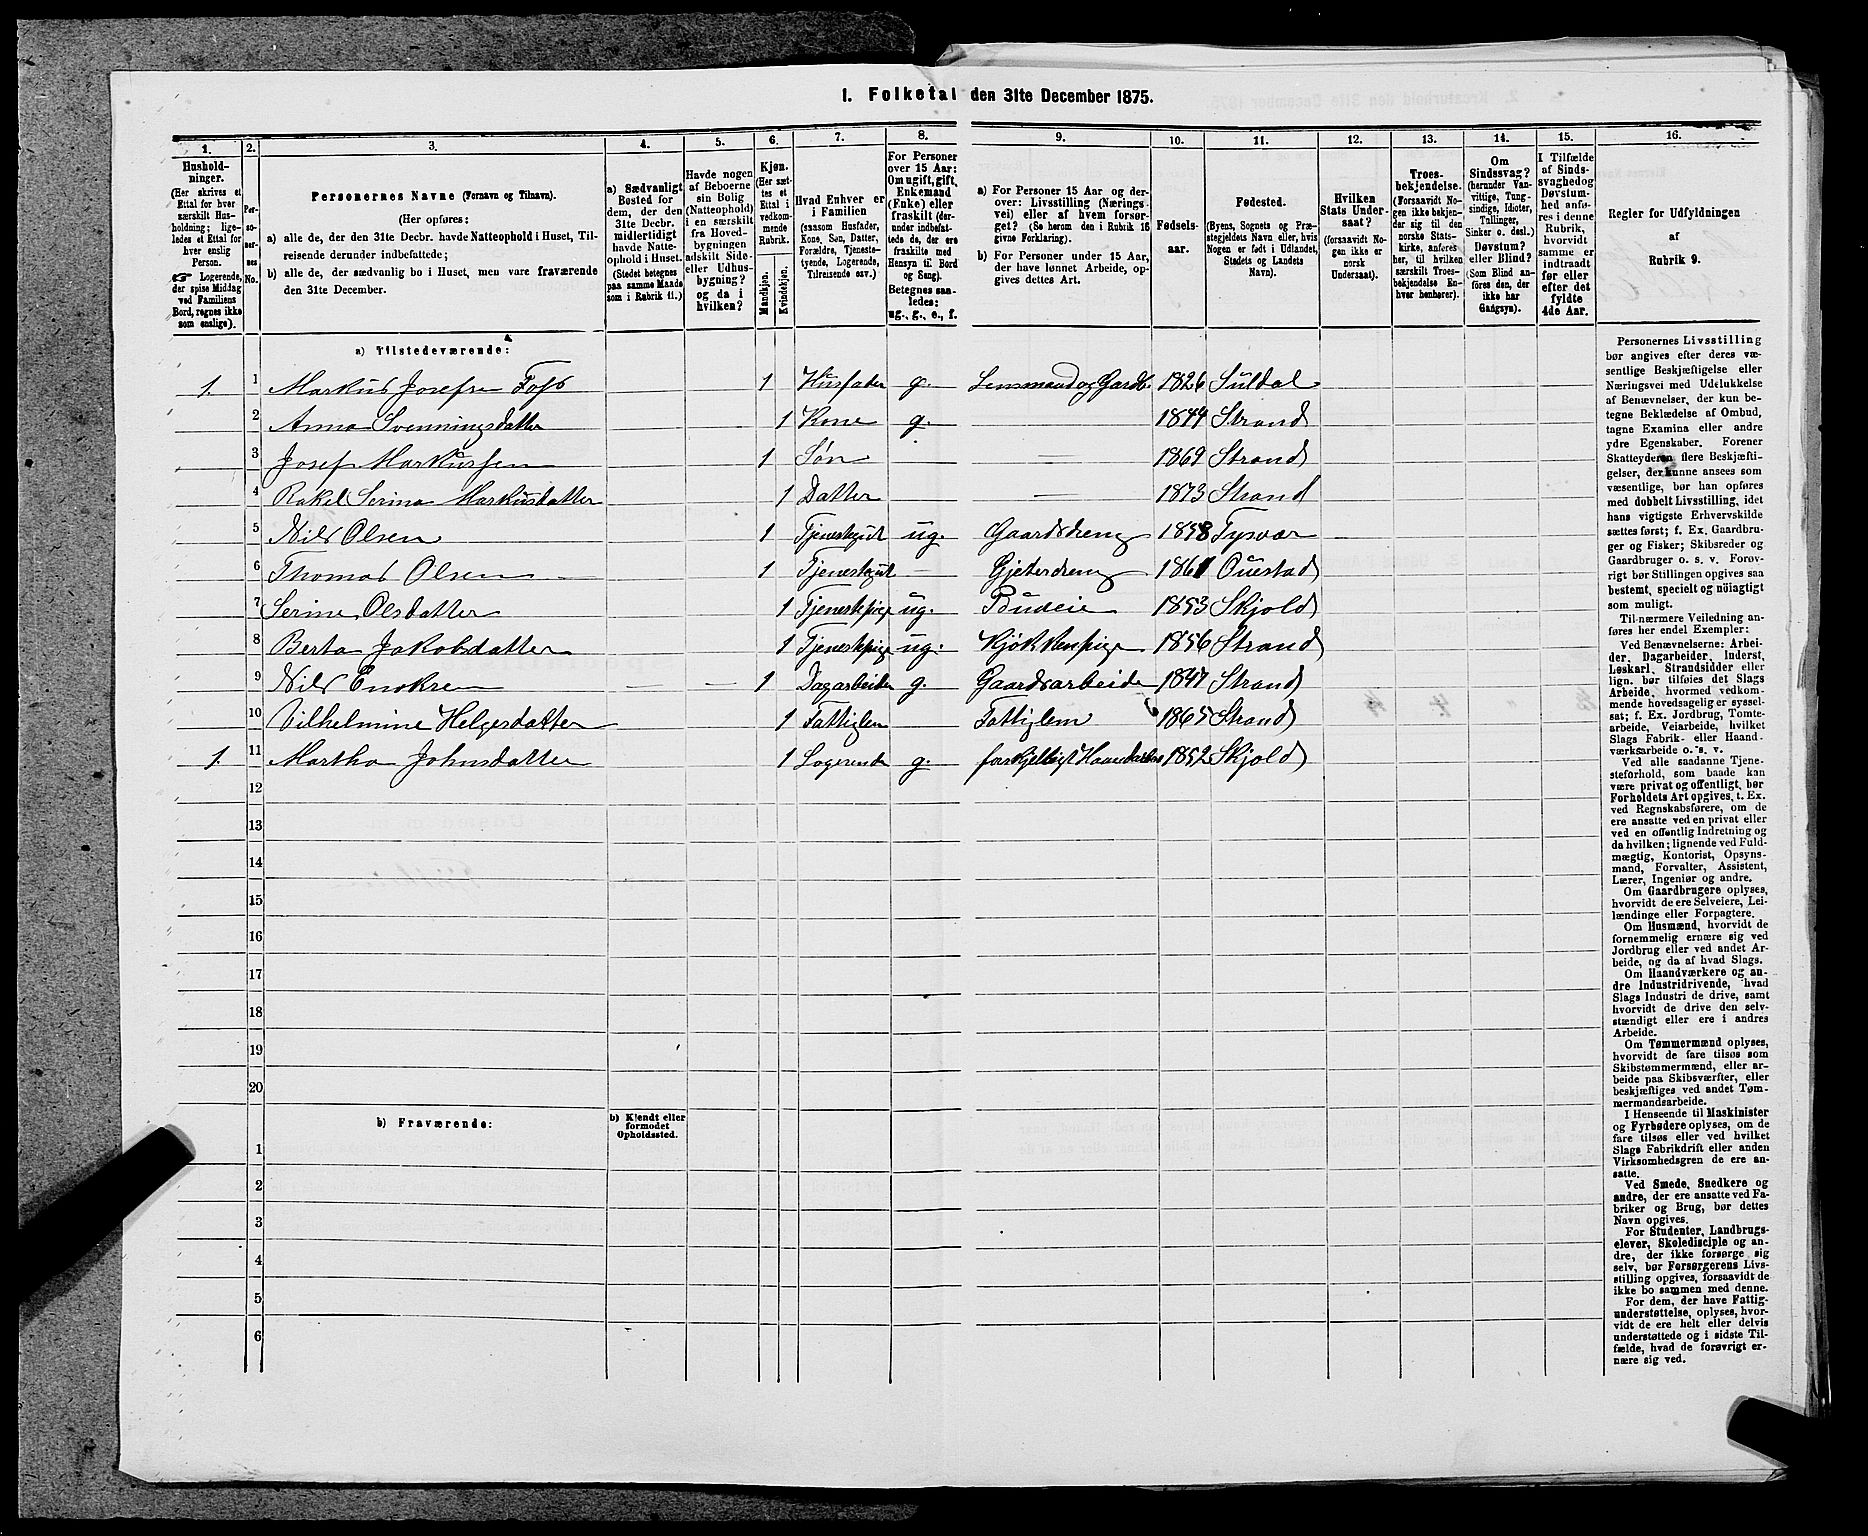 1. Folketal den 31te December 1875.
1. 2. 3. 4. 5. 6. 7. 8. 9. 10. 11. 12. 13. 14. 15. 16.
Hushold-
ninger.
(Her skrives et
Ettal for hver
særskilt Hus-
holdning; lige-
ledes et Ettal for
hver enslig
Person.
Logerende,
der spise Middag
ved Familiens
Bord, regnes ikke
som enslige).
Per-
so-
ner-
nes
No.
Personernes Navne (Fornavn og Tilnavn).
(Her opføres:
a) alle de, der den 31te Decbr. havde Natteophold i Huset, Til-
reisende derunder indbefattede;
b) alle de, der sædvanlig bo i Huset, men vare fraværende
den 31te December.
a) Sædvanligt
Bosted for
dem, der den
31te Decbr.
midlertidigt
havde Natte-
ophold i Huset.
(Stedet betegnes
paa samme Maade
som i Rubrik 11.)
Havde nogen
af Beboerne
sin Bolig
(Natteophold)
i en særskilt
fra Hoved-
bygningen
adskilt Side-
eller Udhus-
bygning?
og da i
hvilken?
Kjøn.
(Her sæt-
tes et
Ettal i
vedkom-
mende
Rubrik.
Mandkjøn.
Kvindekjøn.
Hvad Enhver er
i Familien
(saasom Husfader,
Kone, Søn, Datter,
Forældre, Tjeneste-
tyende, Logerende,
Tilreisende osv.)
For Personer
over 15 Aar:
Om ugift, gift,
Enkemand
(Enke) eller
fraskilt (der-
under indbefat-
tede de, der ere
fraskilte med
Hensyn til Bord
og Seng).
Betegnes saa-
ledes:
ug., g., e., f.
a) For Personer 15 Aar og der-
over: Livsstilling (Nærings-
vei) eller af hvem forsør-
get? (Se herom den i Rubrik 16
givne Forklaring).
b) For Personer under 15 Aar,
der have lønnet Arbeide, op-
gives dettes Art.
Fødsels-
aar.
Fødested.
(Byens, Sognets og Præ-
stegjeldets Navn eller, hvis
Nogen er født i Udlandet,
Stedets og Landets
Navn).
Hvilken
Stats Under-
saat?
(forsaavidt No-
gen ikke er
norsk
Undersaat).
Troes-
bekjendelse.
(Forsaavidt No-
gen ikke bekjen-
der sig til den
norske Stats-
kirke, anføres
her, til hvilken
særskilt Troes-
bekjendelse En-
hver henhører).
Om
Sindssvag?
(herunder Van-
vittige, Tung-
sindige, Idioter,
Tullinger,
Sinker o. desl.)
Døvstum?
eller Blind?
(Som Blind an-
føres den, der
ikke har
Gangsyn).
I Tilfælde
af Sinds-
svaghed og
Døvstum-
hed anfø-
res i denne
Rubrik,
hvorvidt
samme er
indtraadt
før eller
efter det
fyldte
4de Aar.
Regler for Udfyldningen
af
Rubrik 9.
a) Tilstedeværende:
1. 1 Markus Josefsen Fos 1 Husfader g. Lensmand og Gardb. 1826 Suldal
2 Anna Svenningsdatter 1 Kone g. — 1844 Strand
3 Josef Markussen 1 Søn — 1869 Strand
4 Rakel Serina Markusdatter 1 Datter — 1873 Strand
5 Nils Olsen 1 Tjenestegut ug. Gaardsdreng 1858 Tysvær
6 Thomas Olsen 1 Tjenestgut — Gjeterdreng 1861
7 Serine Olsdatter 1 Tjenestepige ug. Budeie 1853 Skjold
8 Berta Jakobsdatter 1 Tjenestepige ug. Kjøkkenpige 1856 Strand
9 Nils Enoksen — — 1 Dagarbeider g. Gaardsarbeide 1847 Strand
10 Vilhelmine Helgesdatter 1 Fattiglem Fattiglem 1865 Strand
1. 11 Martha Johnsdatter 1 Logerende g. forskjelligt Haandarbei 1852 Skjold
12
13
14
15
16
17
18
19
20
b) Fraværende:
b) Kjendt eller
formodet
Opholdssted.
1
2
3
4
5
6
Personernes Livsstilling
bør angives efter deres væ-
sentlige Beskjæftigelse eller
Næringsvei med Udelukkelse
af Benævnelser, der kun be-
tegne Beklædelse af Ombud,
tagne Examina eller andre
ydre Egenskaber. Forener
Skatteyderen flere Beskjæfti-
gelser, der kunne ansees som
væsentlige, bør han opføres
med dobbelt Livsstilling, idet
hans vigtigste Erhvervskilde
sættes først; f. Ex. Gaardbru-
ger og Fisker; Skibsreder og
Gaardbruger o. s. v. Forøv-
rigt bør Stillingen opgives saa
bestemt, specielt og nøiagtigt
som muligt.
Til nærmere Veiledning an-
føres her endel Exempler:
Ved Benævnelserne: Arbei-
der, Dagarbeider, Inderst,
Løskarl, Strandsidder eller
lign. bør tilføies det Slags
Arbeide, hvormed vedkom-
mende hovedsagelig er syssel-
sat; f. Ex. Jordbrug, Tomte-
arbeide, Veiarbeide, hvilket
Slags Fabrik- eller Haand-
værksarbeide o. s. v.
Ved alle saadanne Tjene-
steforhold, som baade kan
være privat og offentligt, bør
Forholdets Art opgives, t. Ex.
ved Regnskabsførere, om de
ere ansatte ved en privat eller
ved en offentlig Indretning og
da hvilken; lignende ved Fuld-
mægtig, Kontorist, Opsyns-
mand, Forvalter, Assistent,
Lærer, Ingeniør og andre.
Om Gaardbrugere oplyses,
hvorvidt de ere Selveiere, Lei-
lændinge eller Forpagtere.
Om Husmænd, hvorvidt de
fornemmelig ernære sig ved
Jordbrug eller ved andet Ar-
beide, og da af hvad Slags.
Om Haandværkere og an-
dre Industridrivende, hvad
Slags Industri de drive, samt
hvorvidt de drive den selv-
stændigt eller ere i andres
Arbeide.
Om Tømmermænd oplyses,
hvorvidt de fare tilsøs som
Skibstømmermænd, eller ar-
beide paa Skibsværfter, eller
beskjæftiges ved andet Tøm-
mermandsarbeide.
I Henseende til Maskinister
og Fyrbødere oplyses, om de
fare tilsøs eller ved hvilket
Slags Fabrikdrift eller anden
Virksomhedsgren de ere an-
satte.
Ved Smede, Snedkere og
andre, der ere ansatte ved Fa-
briker og Brug, bør dettes
Navn opgives.
For Studenter, Landbrugs-
elever, Skoledisciple og an-
dre, der ikke forsørge sig
selv, bør Forsørgerens Livs-
stilling opgives, forsaavidt de
ikke bo sammen med denne.
For dem, der have Fattig-
understøttelse, oplyses, hvor-
vidt de ere helt eller delvis
understøttede og i sidste Til-
fælde, hvad de forøvrigt er-
nære sig ved.